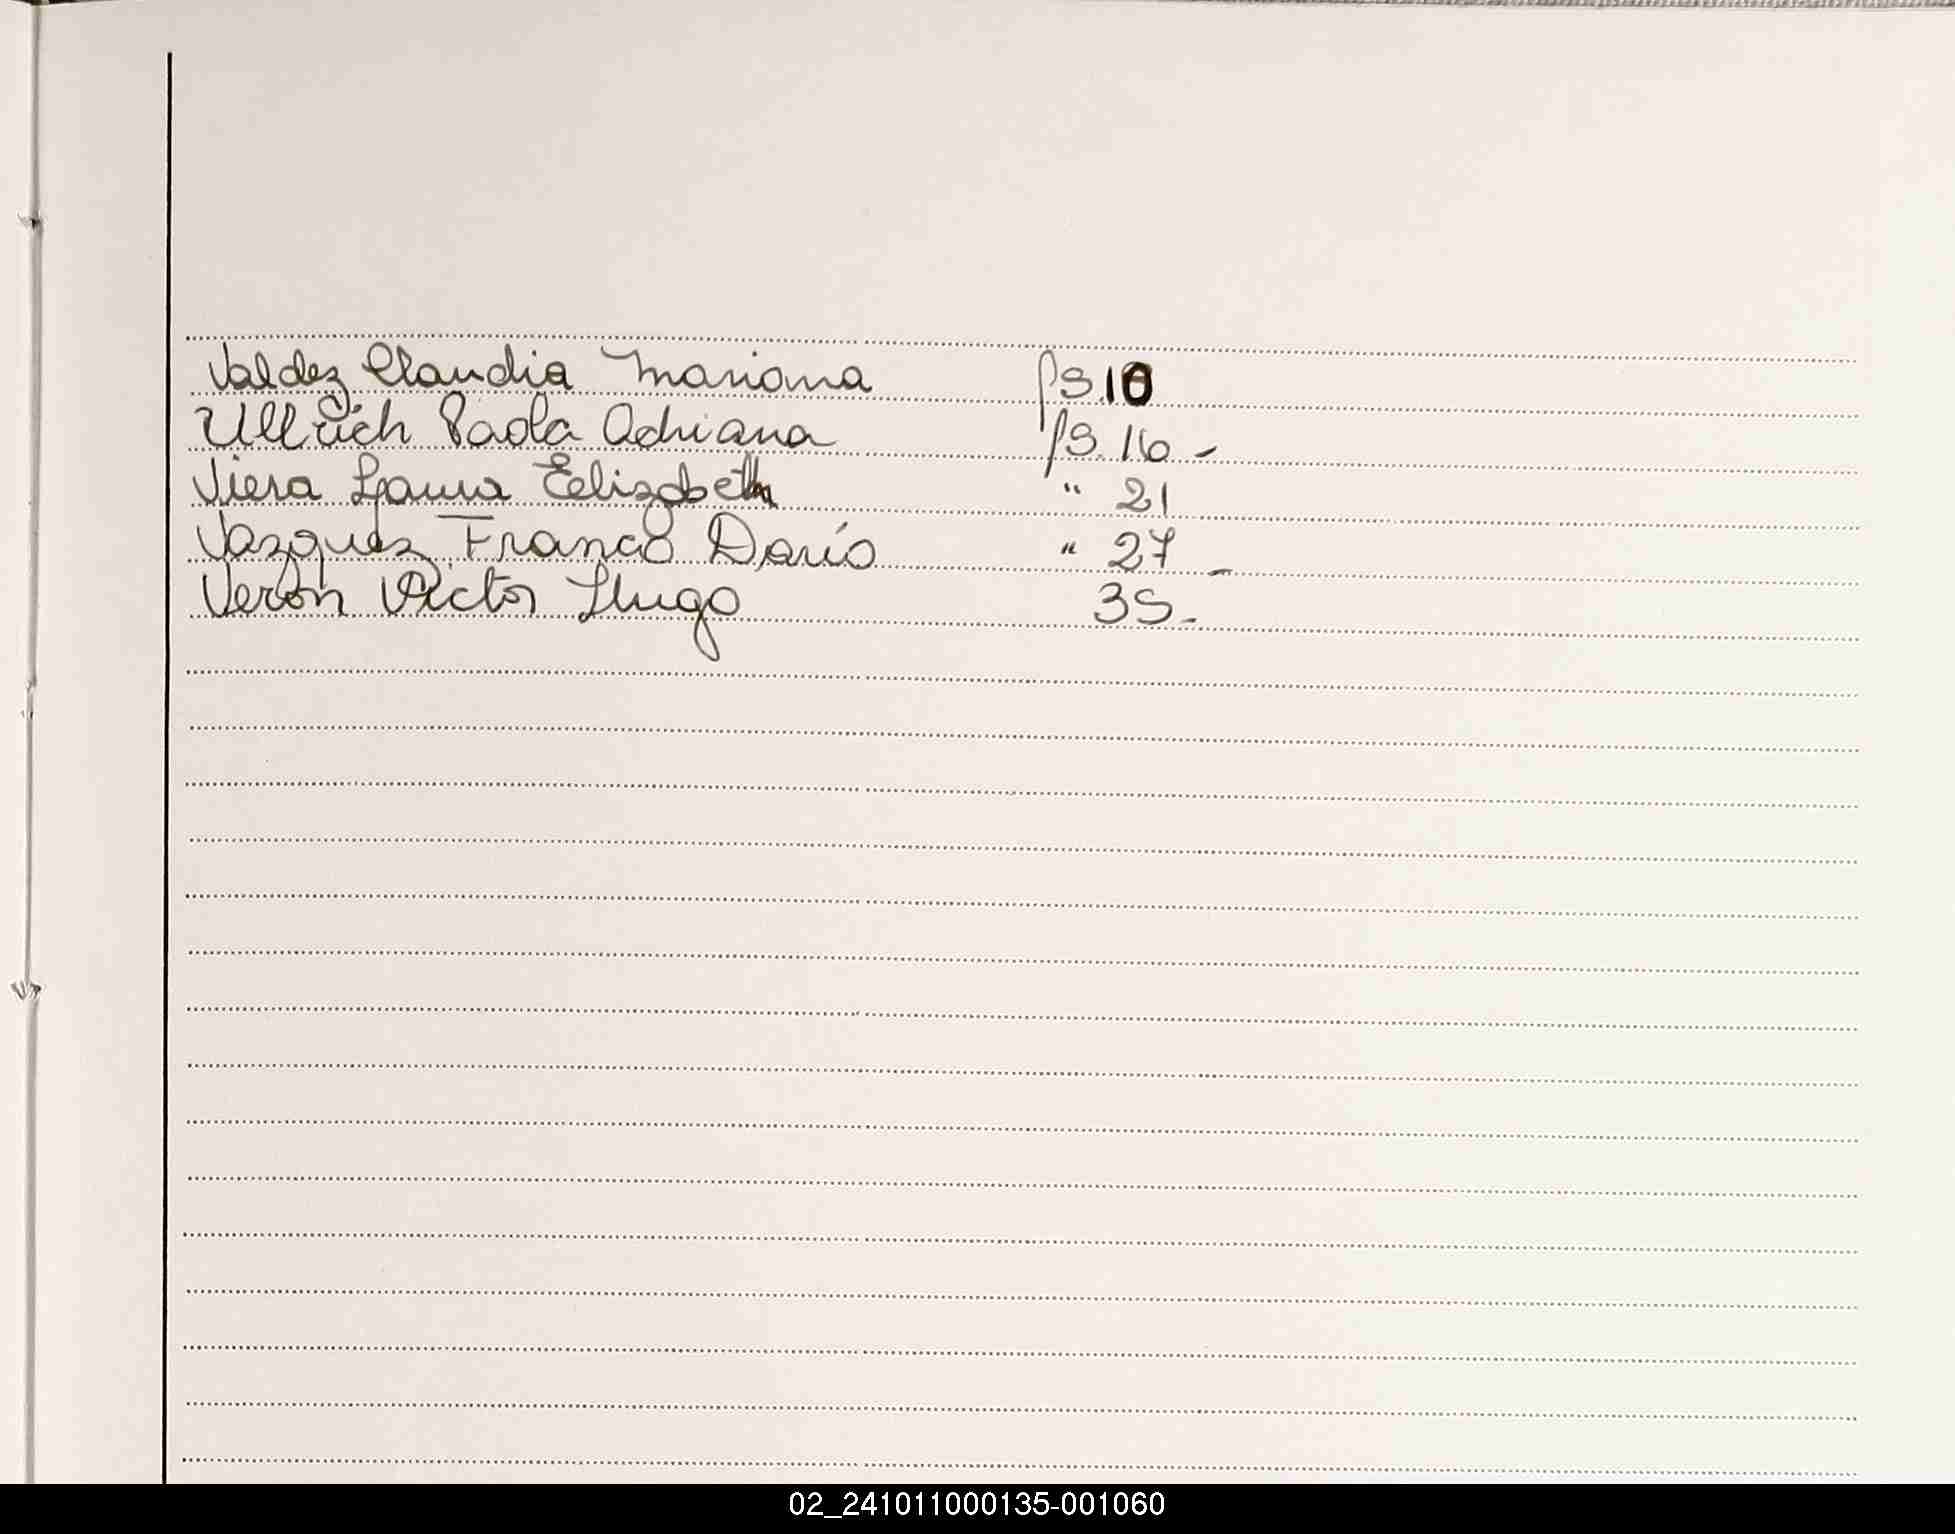 Valdez Claudia Mariana fs. 10
Ullrich Paola Adriana fs. 16-
Viera Laura Elizabeth " 21
Vazquez Franco Darío " 27-
Verón Victor Hugo 35-
02_241011000135-001060